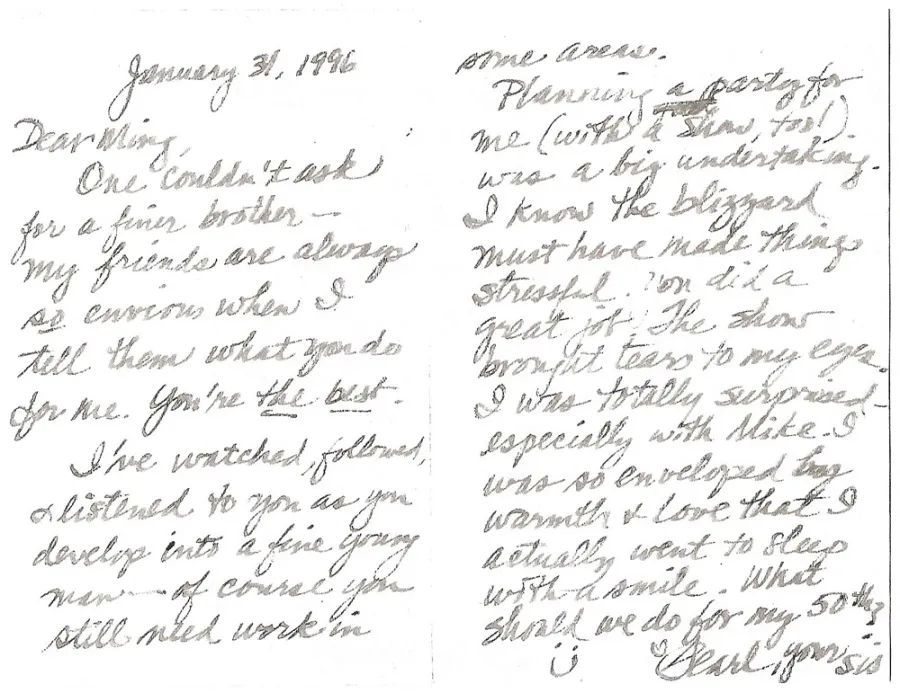 January 31, 1996
Dear Ming,
One couldn't ask
for a finer brother —
my friends are always
so envious when I
tell them what you do
for me. You're the best.
I've watched, followed,
& listened to you as you
develop into a fine young
man — of course you
still need work in
some areas.
Planning a party for
me (with a show, too!)
was a big undertaking.
I know the blizzard
must have made things
stressful. You did a
great job! The show
brought tears to my eyes.
I was totally surprised –
especially with Mike. I
was so enveloped by
warmth & love that I
actually went to sleep
with a smile. What
should we do for my 50th?
Pearl, your sis